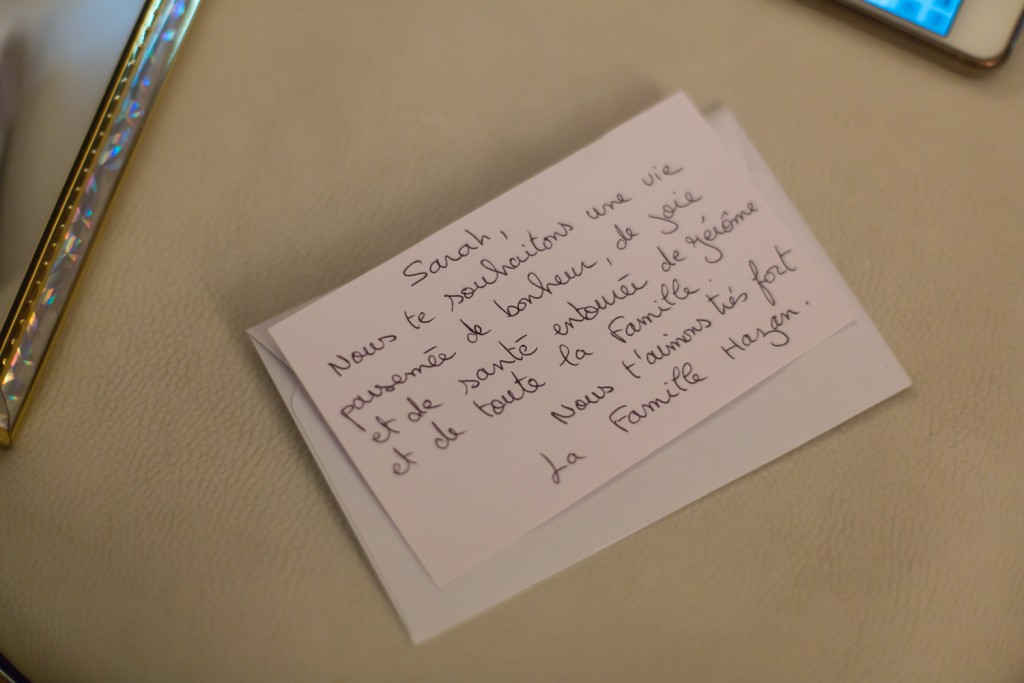 Sarah,
Nous te souhaitons une vie
parsemée de bonheur, de joie
et de santé entourée de Jérôme
et de toute la Famille.
Nous t'aimons très fort
La Famille Hazan.